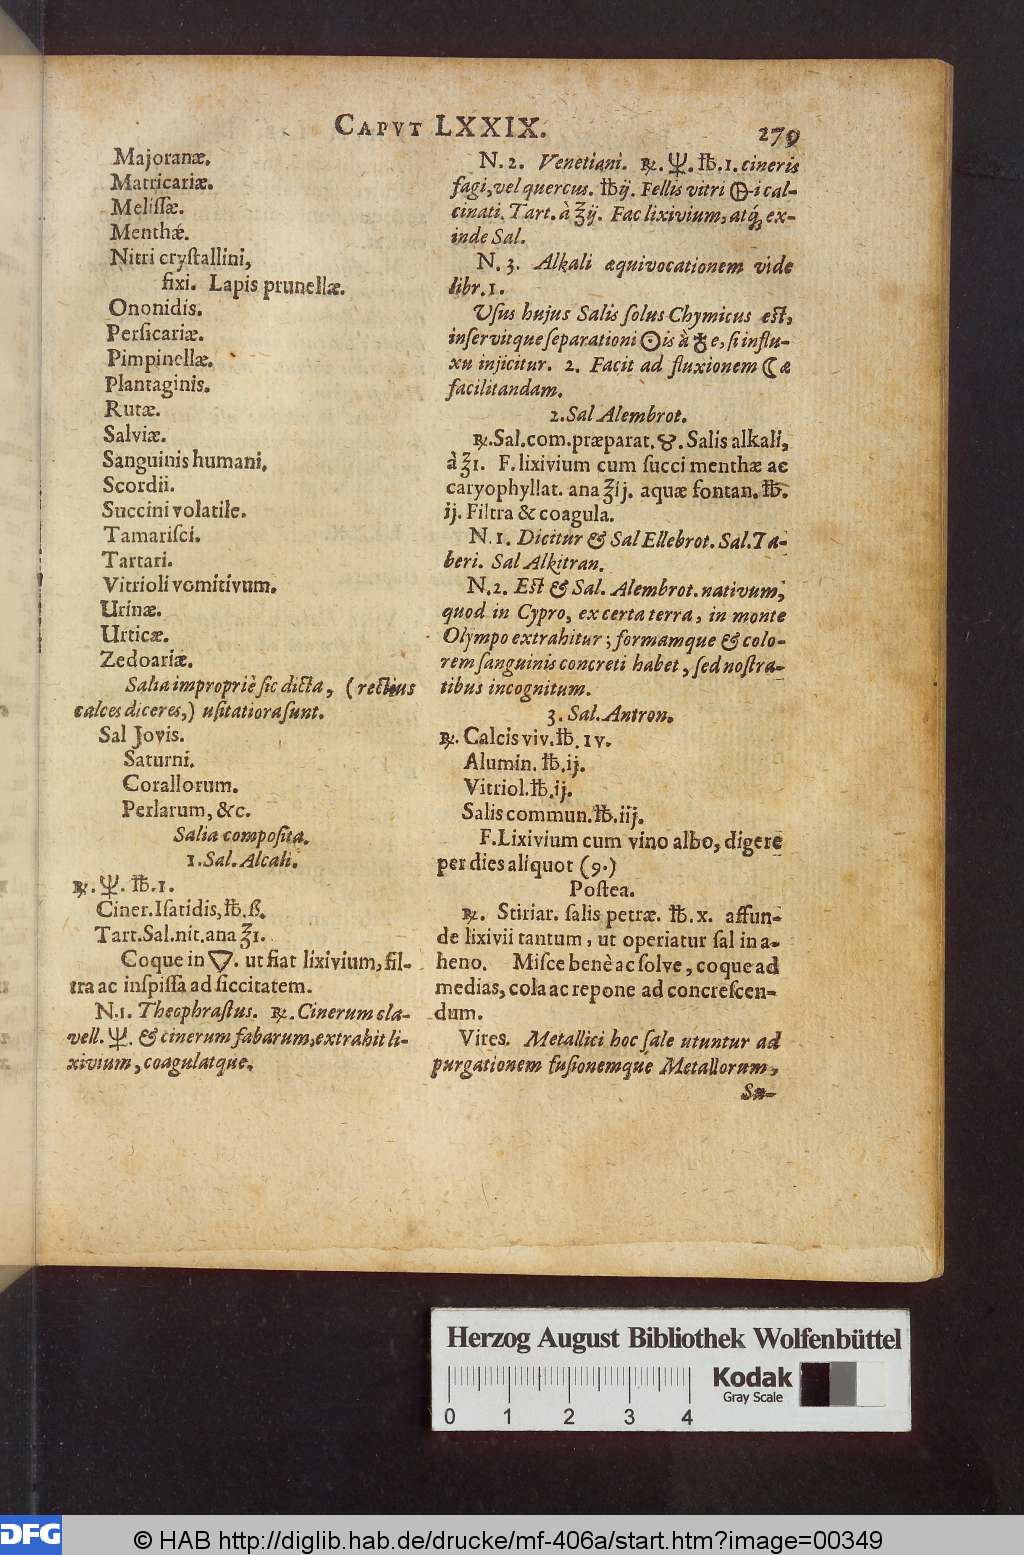 CAPVT LXXIX.
279
Majoranæ.
Matricariæ.
Melissæ.
Menthæ.
Nitri crystallini,
fixi. Lapis prunellæ.
Ononidis.
Persicariæ.
Pimpinellæ.
Plantaginis.
Rutæ.
Salviæ.
Sanguinis humani.
Scordii.
Succini volatile.
Tamarisci.
Tartari.
Vitrioli vomitivum.
Urinæ.
Urticæ.
Zedoariæ.
Salia impropriè sic dicta, (rectius
calces diceres,) usitatiora sunt.
Sal Jovis.
Saturni.
Corallorum.
Perlarum, &c.
Salia composita.
1. Sal. Alcali.
℞. 🜐. ℔. 1.
Ciner. Isatidis, ℔. ß.
Tart. Sal. nit. ana ℥1.
Coque in 🜄. ut fiat lixivium, fil-
tra ac inspissa ad siccitatem.
N. 1. Theophrastus. ℞. Cinerum cla-
vell. . & cinerum fabarum, extrahit li-
xivium, coagulatque.
N. 2. Venetiani. ℞. . ℔. 1. cineris
fagi, vel quercus. ℔ ij. Fellis vitri -i cal-
cinati. Tart. à ℥ij. Fac lixivium, atq; ex-
inde Sal.
N. 3. Alkali æquivocationem vide
libr. 1.
Usus hujus Salis solus Chymicus est,
inservitque separationi ☉is à ♁e, si influ-
xu injicitur. 2. Facit ad fluxionem ☾æ
facilitandam.
2. Sal Alembrot.
℞. Sal. com. præparat. . Salis alkali,
à ℥1. F. lixivium cum succi menthæ ac
caryophyllat. ana ℥ij. aquæ fontan. ℔.
ij. Filtra & coagula.
N. 1. Dicitur & Sal Ellebrot. Sal. Ta-
beri. Sal Alkitran.
N. 2. Est & Sal. Alembrot. nativum,
quod in Cypro, ex certa terra, in monte
Olympo extrahitur; formamque & colo-
rem sanguinis concreti habet, sed nostra-
tibus incognitum.
3. Sal. Antron.
℞. Calcis viv. ℔. IV.
Alumin. ℔. ij.
Vitriol. ℔. ij.
Salis commun. ℔. iij.
F. Lixivium cum vino albo, digere
per dies aliquot (9.)
Postea.
℞. Stiriar. salis petræ. ℔. x. affun-
de lixivii tantum, ut operiatur sal in a-
heno. Misce benè ac solve, coque ad
medias, cola ac repone ad concrescen-
dum.
Vires. Metallici hoc sale utuntur ad
purgationem fusionemque Metallorum,
Sa-
Herzog August Bibliothek Wolfenbüttel
Kodak
Gray Scale
0 1 2 3 4
DFG
© HAB http://diglib.hab.de/drucke/mf-406a/start.htm?image=00349